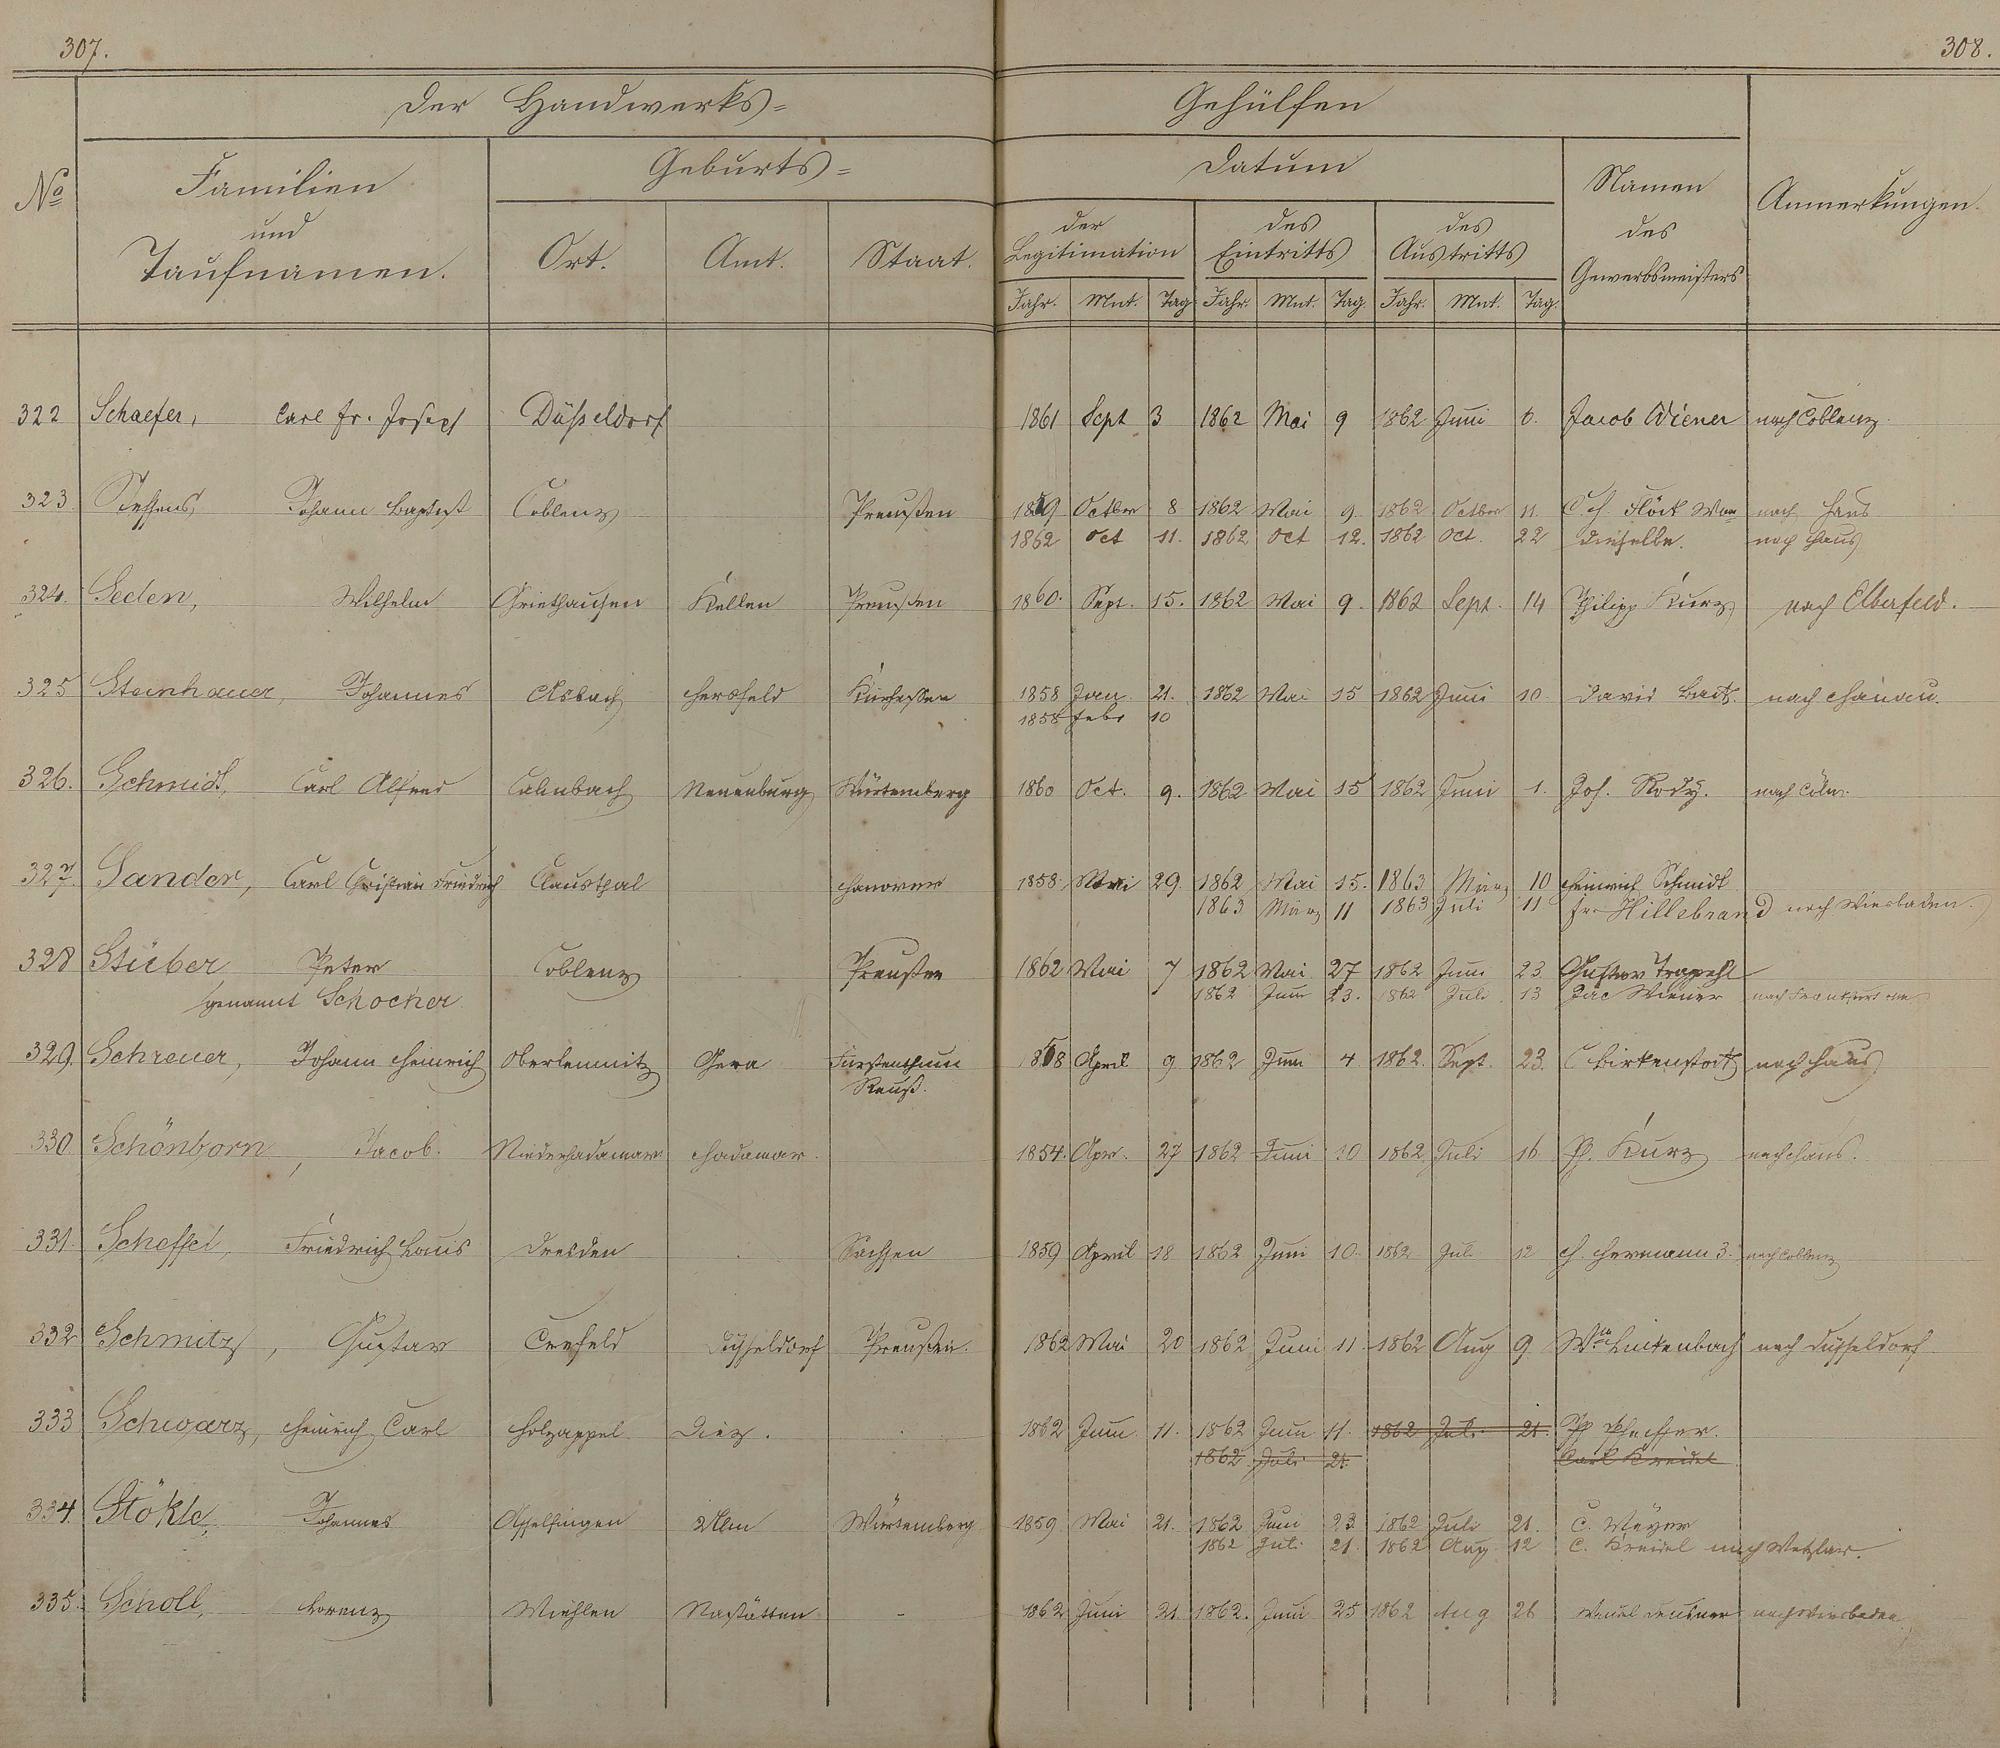 307.
308.
Der Handwerks=
Gehülfen
No
Familien
und
Taufnamen.
Geburts=
Ort.
Amt.
Staat.
Datum
der
Legitimation
des
Eintritts
des
Austritts
Jahr. Mnt. Tag Jahr. Mnt. Tag. Jahr. Mnt. Tag.
Namen
des
Gewerbsmeisters
Anmerkungen.
322 Schaefer, Carl Fr. Joseph Düßeldorf 1861 Sept 3 1862 Mai 9 1862 Juni 6. Jacob Wiener nach Coblenz.
323 Johann Baptist Coblenz Preußen 1859 Octber 8 1862 Mai 9. 1862 Octber 11. Flöck nach Haus
1862 Oct 11. 1862 Oct 12. 1862 Oct. 22 dieselbe. nach Haus
324. Seden, Wilhelm Griethausen Kellen Preußen 1860. Sept. 15. 1862 Mai 9. 1862 Sept. 14 Philipp Kurz nach Elberfeld.
325 Steinhauer, Johannes Asbach Hersfeld Kurhessen 1858 Jan. 21. 1862 Mai 15 1862 Juni 10. David nach Hanau.
1858 Febr 10
326. Schmidt, Carl Alfred Calmbach Neuenburg Würtemberg 1860 Oct. 9. 1862 Mai 15 1862 Juni 1. Jos. Rody. nach Cöln.
327. Sander, Carl Christian Friedrich Clausthal Hanover 1858. Mai 29. 1862 Mai 15. 1863 März 10 Heinrich Schmidt
1863 März 11 1863 Juli 11 Fr. Hillebrand nach Wiesbaden.
328 Stieber Peter Coblenz Preußen 1862 Mai 7 1862 Mai 27 1862 Juni 23 Gustav Trappehl
genannt Schocher 1862 Juni 23. 1862 Juli 13 Jac Wiener nach Frankfurt
329. Schreuer, Johann Heinrich Oberlemnitz Gera Fürstenthum 1858 April 9 1862 Juni 4 1862. Sept. 23. C Birkenstock nach Haus
Reuß.
330. Schönborn, Jacob. Niederhadamar Hadamar. 1854. Apr. 27 1862 Juni 10 1862 Juli 16 Ph. Kurz nach Haus.
331. Scheffel, Friedrich Louis Dresden Sachsen 1859 April 18 1862 Juni 10. 1862 Jul 12 Hermann 3. nach Coblenz
332 Schmitz, Gustav Crefeld Düsseldorf Preußen. 1862 Mai 20 1862 Juni 11 1862 Aug 9. Wm Linkenbach nach Düsseldorf
333 Schwarz, Heinrich Carl Holzappel Diez. 1862 Juni 11. 1862 Juni 11. 1862 Juli 21. Ph Pfeiffer.
1862 Juli 21. Carl Kreidel
334. Stökle, Johannes Asselfingen Ulm Würtemberg 1859. Mai 21. 1862 Juni 23 1862 Juli 21. C. Meyer
1862 Juli 21. 1862 Aug 12 C. Kreidel nach Wetzlar.
335. Scholl, Lorenz Miehlen Nastätten - 1862 Juni 21. 1862. Juni 25 1862 Aug 26 nach Wiesbaden